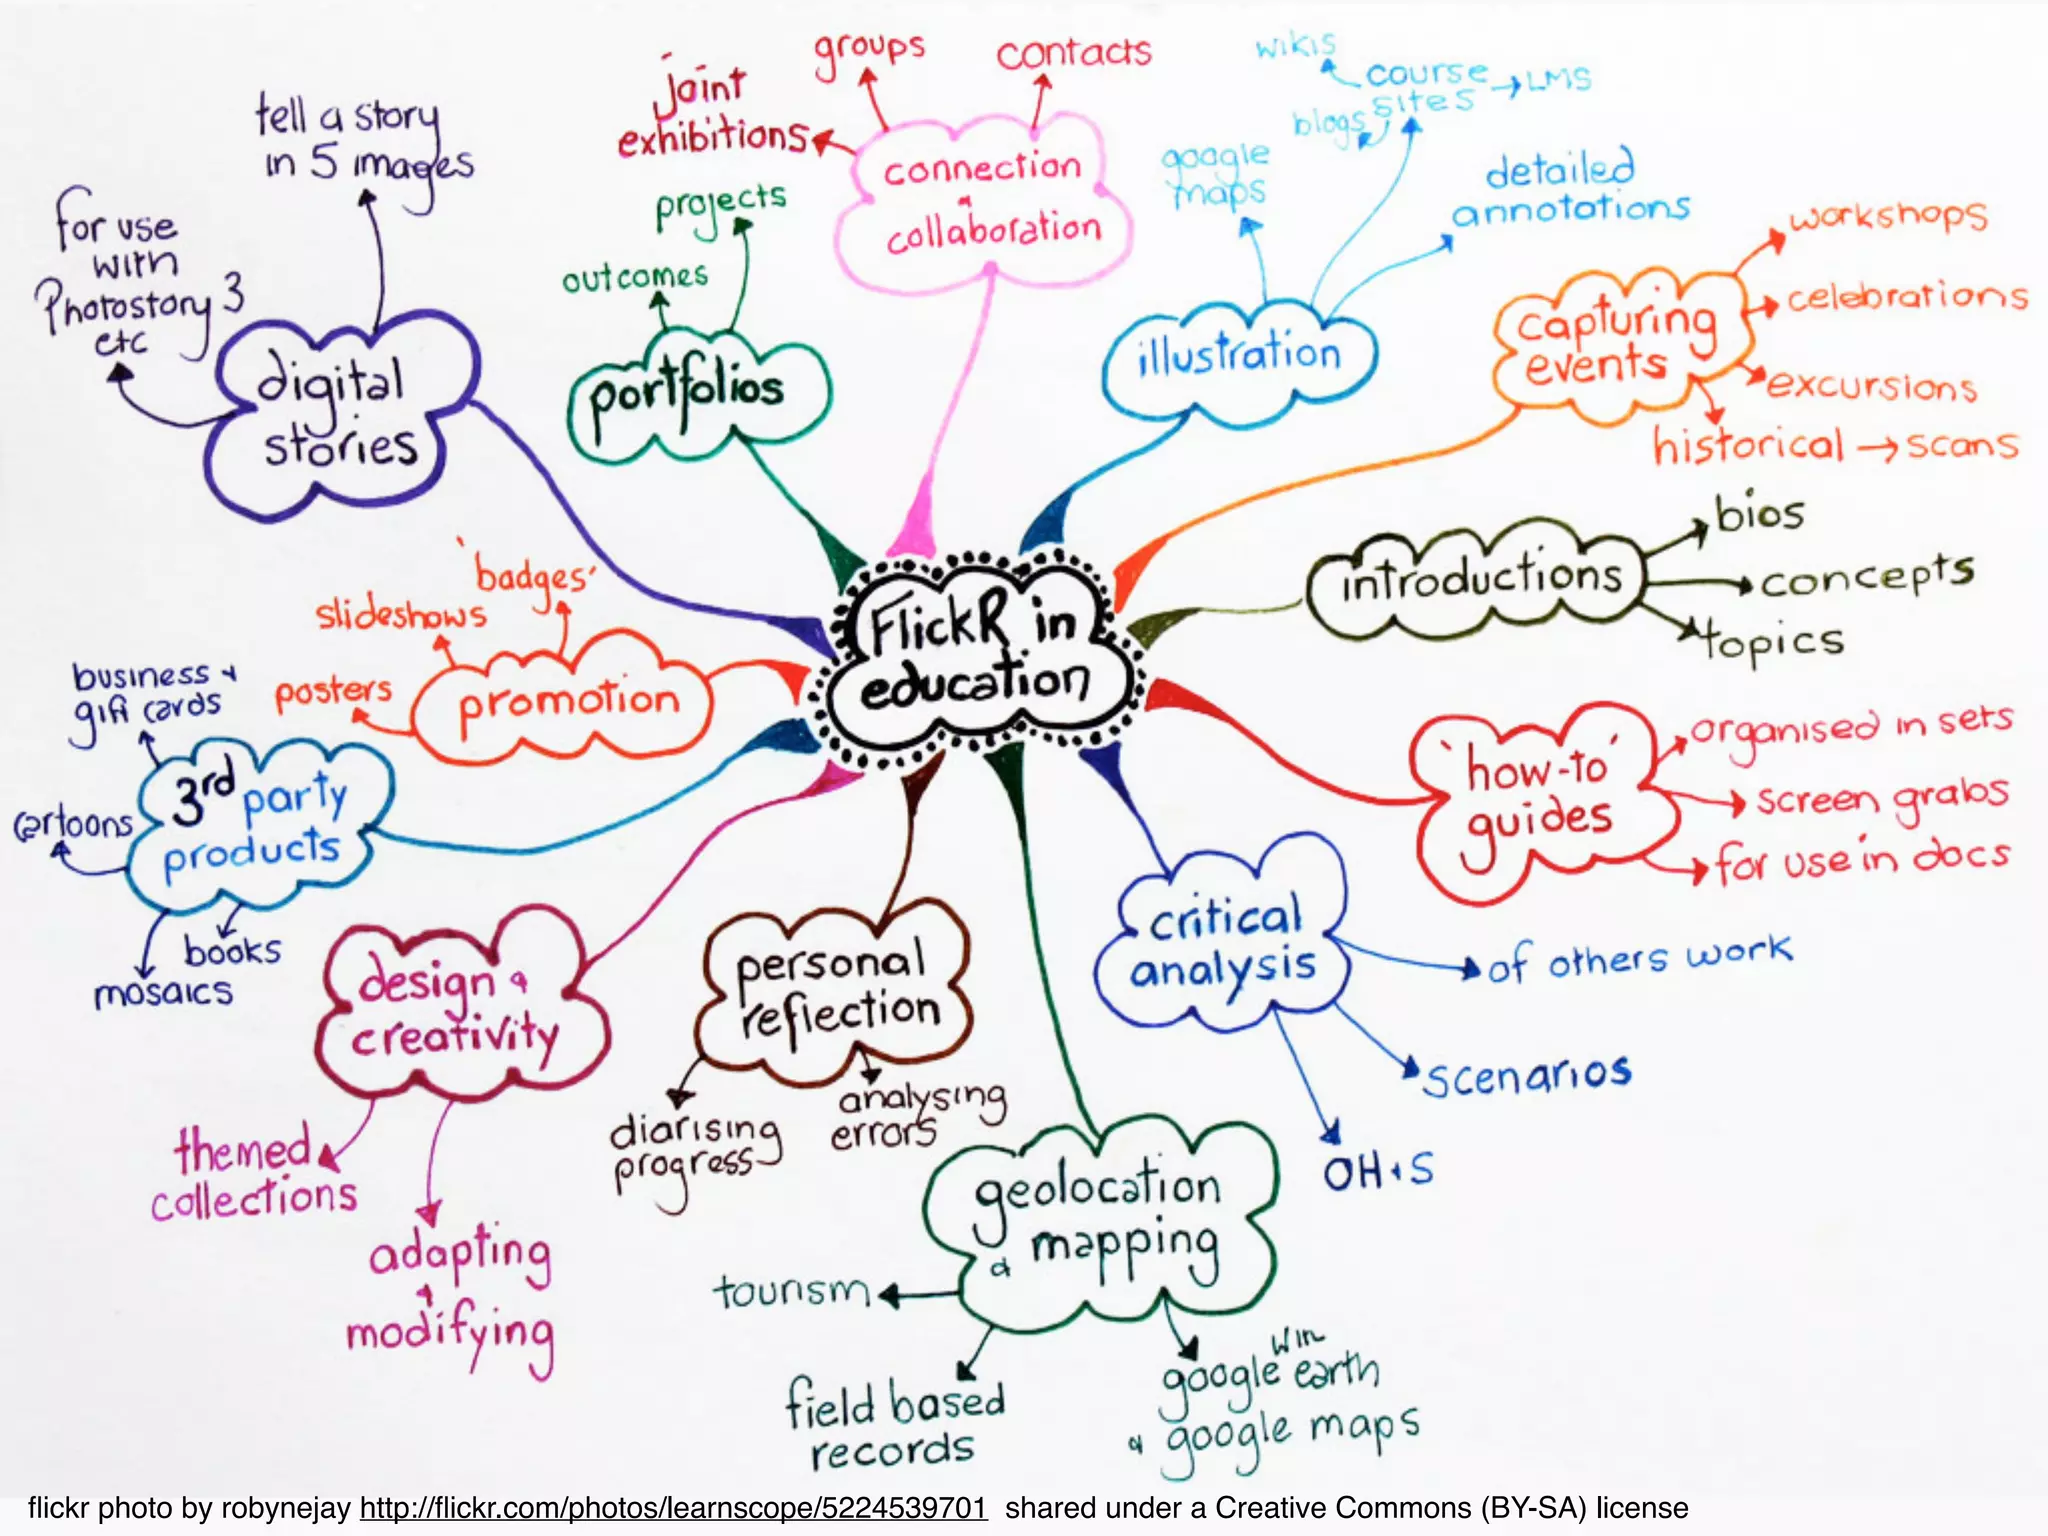 FlickR in
education
connection
&
collaboration
joint
exhibitions
groups
contacts
illustration
google
maps
course
sites
wikis
blogs
LMS
detailed
annototions
capturing
events
workshops
celebrations
excursions
historical → scans
introductions
bios
concepts
topics
'how-to'
guides
organised in sets
screen grabs
for use in docs
critical
analysis
of others work
scenarios
OH+S
geolocation
& mapping
tourism
field based
records
google earth
win
& google maps
personal
reflection
diarising
progress
analysing
errors
design &
creativity
themed
collections
adapting
&
modifying
3rd party
products
business &
gift cards
cartoons
mosaics
books
promotion
posters
slideshows
'badges'
digital
stories
for use
with
Photostory 3
etc
tell a story
in 5 images
portfolios
outcomes
projects
flickr photo by robynejay http://flickr.com/photos/learnscope/5224539701 shared under a Creative Commons (BY-SA) license